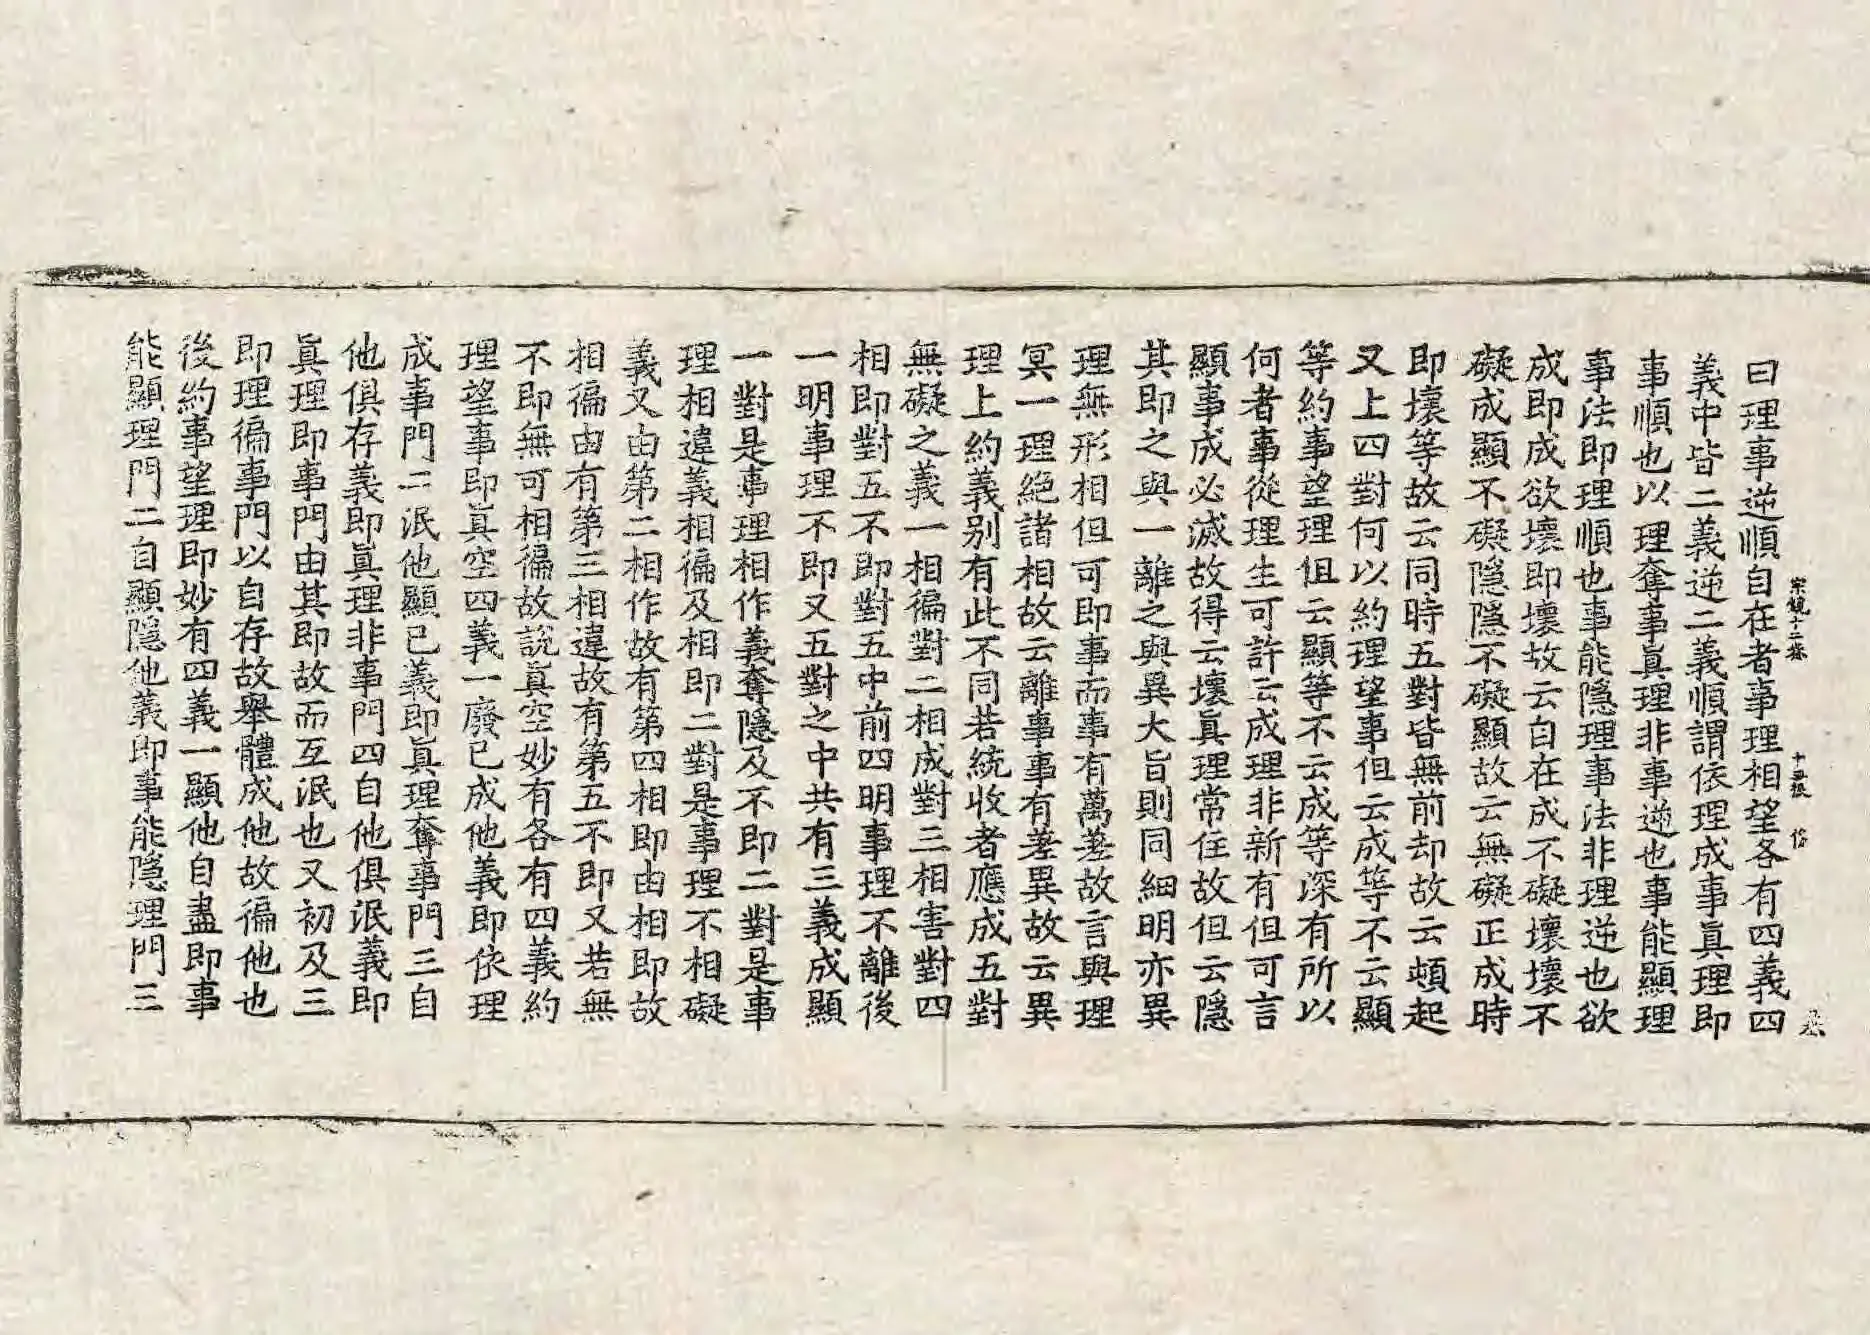 曰理事逆順自在者事理相望各有四義四
義中皆二義逆二義順謂依理成事眞理即
事順也以理奪事眞理非事逆也事能顯理
事法即理順也事能隱理事法非理逆也欲
成即成欲壞即壞故云自在成不礙壞壞不
礙成顯不礙隱隱不礙顯故云無礙正成時
即壞等故云同時五對皆無前却故云頓起
又上四對何以約理望事但云成等不云顯
等約事望理但云顯等不云成等深有所以
何者事從理生可許云成理非新有但可言
顯事成必滅故得云壞眞理常住故但云隱
其即之與一離之與異大旨則同細明亦異
理無形相但可即事而事有萬差故言與理
冥一理絶諸相故云離事事有差異故云異
理上約義别有此不同若統收者應成五對
無礙之義一相徧對二相成對三相害對四
相即對五不即對五中前四明事理不離後
一明事理不即又五對之中共有三義成顯
一對是事理相作義奪隱及不即二對是事
理相違義相徧及相即二對是事理不相礙
義又由第二相作故有第四相即由相即故
相徧由有第三相違故有第五不即又若無
不即無可相徧故說眞空妙有各有四義約
理望事即眞空四義一廢已成他義即依理
成事門二泯他顯已義即眞理奪事門三自
他俱存義即眞理非事門四自他俱泯義即
眞理即事門由其即故而互泯也又初及三
即理徧事門以自存故舉體成他故徧他也
後約事望理即妙有四義一顯他自盡即事
能顯理門二自顯隱他義即事能隱理門三